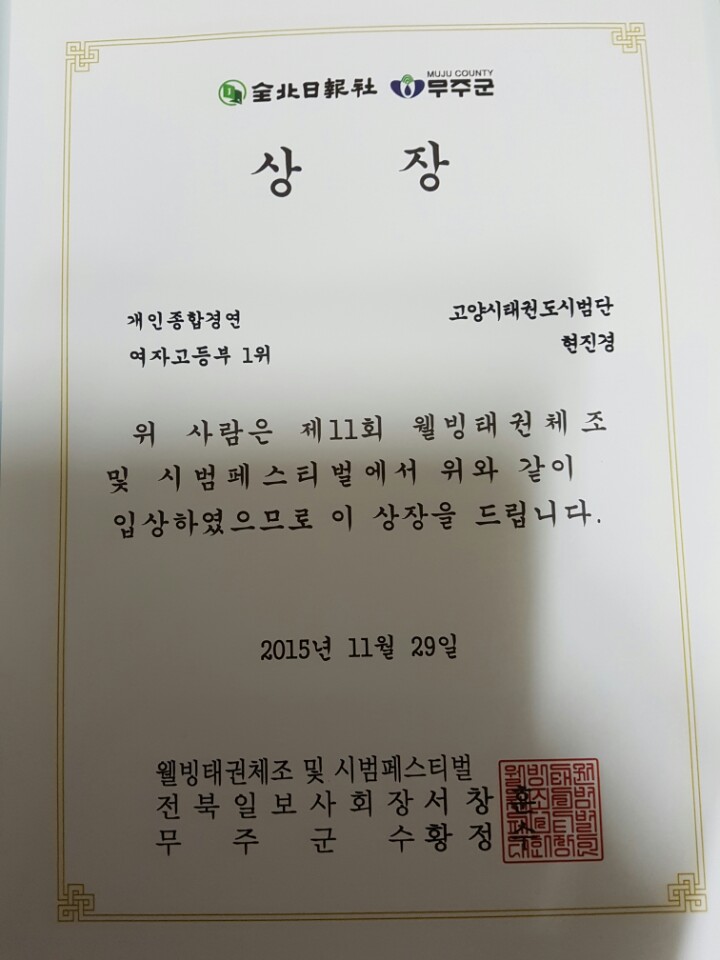 全北日報社 MUJU COUNTY 무주군
상 장
개인종합경연 고양시태권도시범단
여자고등부 1위 현진경
위 사람은 제11회 웰빙태권체조
및 시범페스티벌에서 위와 같이
입상하였으므로 이 상장을 드립니다.
2015년 11월 29일
웰빙태권체조 및 시범페스티벌
전북일보사회장서창훈
무주군수황정수